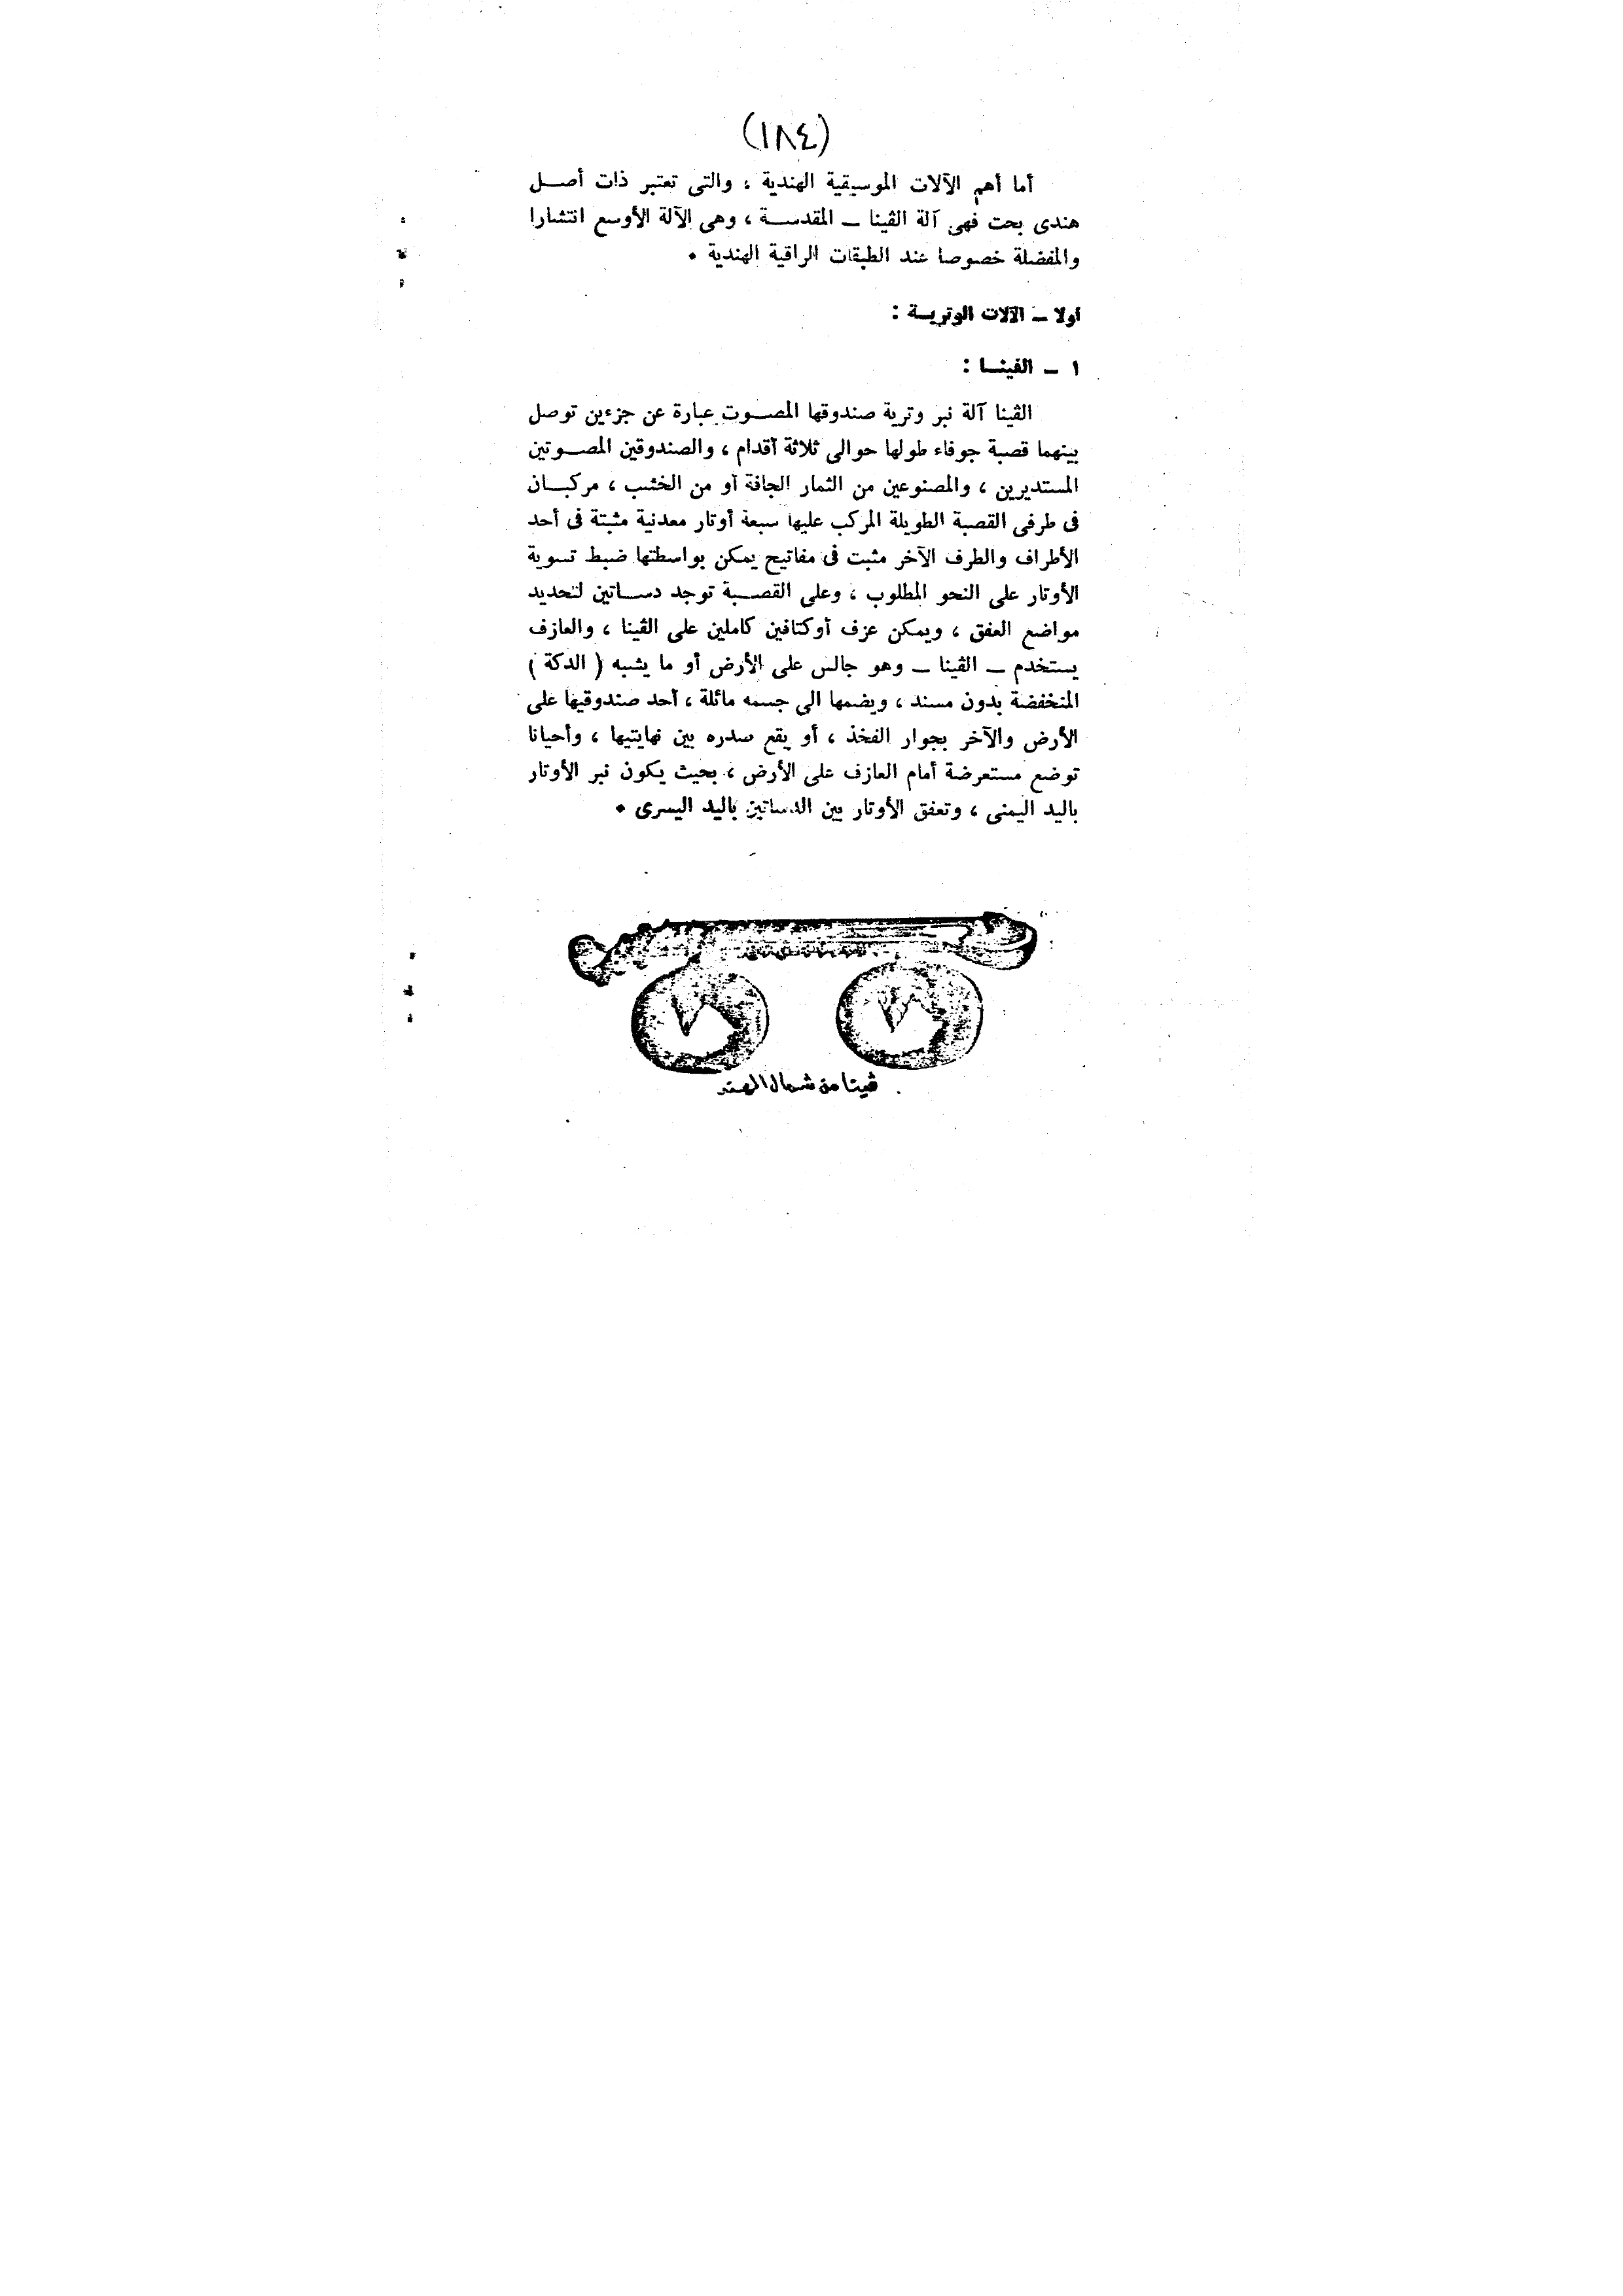 (١٨٤)
أما أهم الآلات الموسيقية الهندية ، والتى تعتبر ذات أصل
هندى بحت فهى آلة الڤينا – المقدسة ، وهى الآلة الأوسع انتشارا
والمفضلة خصوصا عند الطبقات الراقية الهندية .
أولا – الآلات الوترية :
١ – الفينا :
الڤينا آلة نبر وترية صندوقها المصوت عبارة عن جزءين توصل
بينهما قصبة جوفاء طولها حوالى ثلاثة أقدام ، والصندوقين المصوتين
المستديرين ، والمصنوعين من الثمار الجافة أو من الخشب ، مركبان
فى طرفى القصبة الطويلة المركب عليها سبعة أوتار معدنية مثبتة فى أحد
الأطراف والطرف الآخر مثبت فى مفاتيح يمكن بواسطتها ضبط تسوية
الأوتار على النحو المطلوب ، وعلى القصبة توجد دساتين لتحديد
مواضع العفق ، ويمكن عزف أوكتافين كاملين على الڤينا ، والعازف
يستخدم – الڤينا – وهو جالس على الأرض أو ما يشبه ( الدكة )
المنخفضة بدون مسند ، ويضمها الى جسمه مائلة ، أحد صندوقيها على
الأرض والآخر بجوار الفخذ ، أو يقع صدره بين نهايتيها ، وأحيانا
توضع مستعرضة أمام العازف على الأرض ، بحيث يكون نبر الأوتار
باليد اليمنى ، وتعفق الأوتار بين الدساتين باليد اليسرى .
ڤينا من شمال الهند